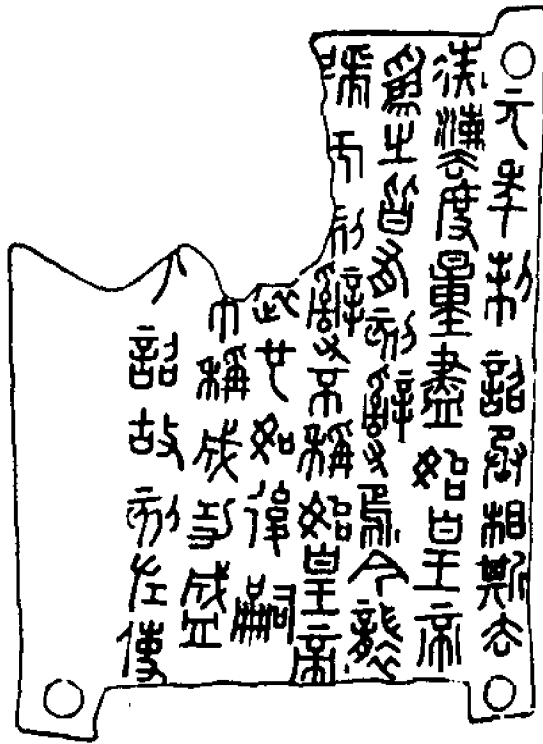 元年制詔丞相斯去
疾灋度量盡始皇帝
爲之皆有刻辭焉今襲
號而刻辭不稱始皇帝
也如後嗣
不稱成功盛
詔故刻左使